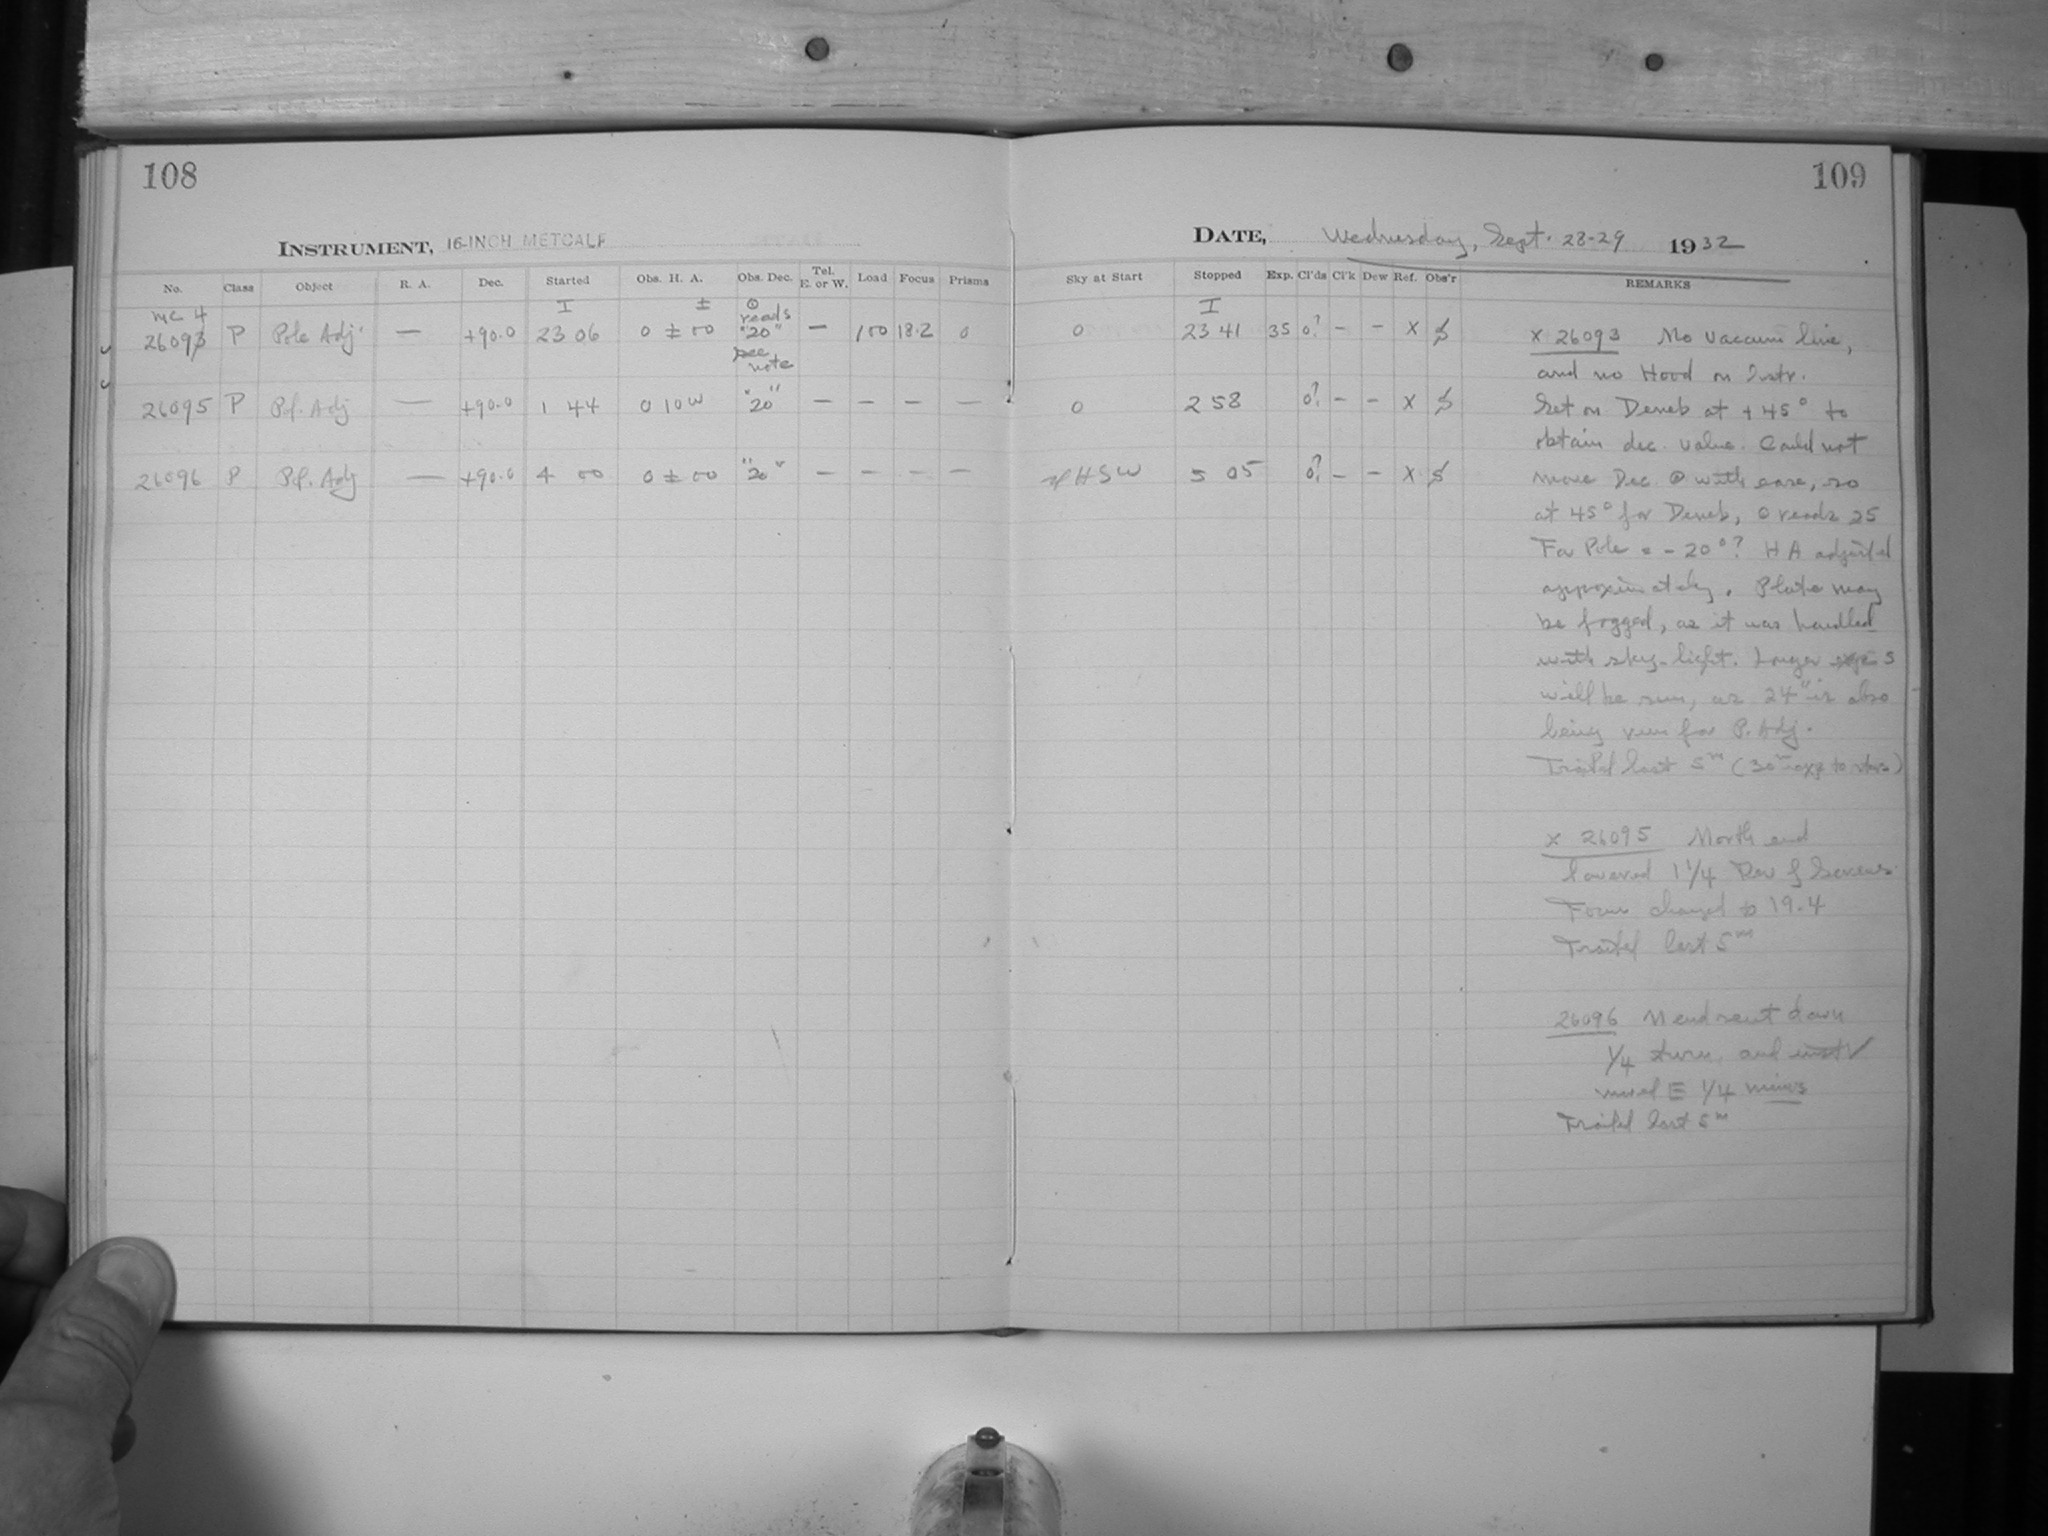 108
INSTRUMENT, 16-INCH METCALF
No. Class Object R. A. Dec. Started Obs. H. A. Obs. Dec. Tel. E. or W. Load Focus Prisms
I ± ⊙ reads
MC 4
26093 P Pole Adj. — +90.0 23 06 0 ± 00 "20" — 100 18.2 0
see note
26095 P Pol. Adj — +90.0 1 44 0 10 W "20" — — — —
26096 P Pol. Adj — +90.0 4 00 0 ± 00 "20" — — — —
109
DATE, Wednesday, Sept. 28-29 1932
Sky at Start Stopped Exp. Cl'ds Cl'k Dew Ref. Obs'r REMARKS
I
0 23 41 35 0? — — X
0 2 58 0? — — X
HSW 5 05 0? — — X
X 26093 No vacuum line,
and no Hood on Instr.
Set on Deneb at +45° to
obtain dec. value. Could not
move Dec. ⊙ with ease, so
at 45° for Deneb, ⊙ reads 25
For Pole = -20°? HA adjusted
approximately. Plate may
be fogged, as it was handled
with sky-light. Longer
will be run, as 24" is also
being run for P. Adj.
Trailed last 5m (30m exp to stars)
X 26095 North end
lowered 1 1/4 Rev of Screws.
Focus changed to 19.4
Trailed last 5m
26096 N end went down
1/4 turn, and instr
moved E 1/4
Trailed last 5m